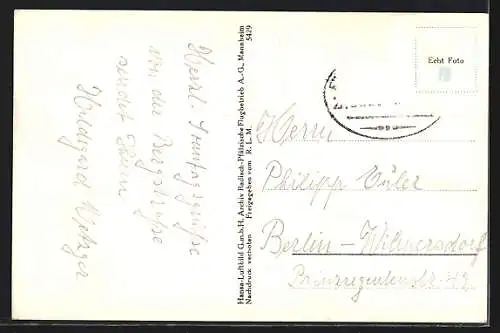 Herzl. Sonntagsgrüße
von der Bergstraße
sendet Ihnen
Hildegard Metzger
Hansa-Luftbild G.m.b.H. Archiv Badisch-Pfälzische Flugbetrieb A.-G., Mannheim
Nachdruck verboten Freigegeben vom R. L. M. 5429
Echt Foto
Herrn
Philipp
Berlin-Wilmersdorf
Prinzregentenstr. 42